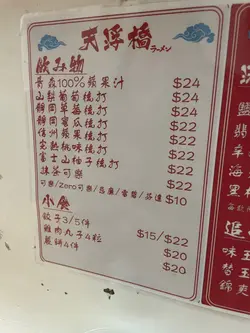 天浮橋
ラーメン
飲み物
青森100%蘋果汁 $24
山梨葡萄梳打 $24
靜岡草莓梳打 $24
靜岡蜜瓜梳打 $22
信州蘋果梳打 $22
完熟桃味梳打 $22
富士山柚子梳打 $22
抹茶可樂 $22
可樂/Zero可樂/忌廉/雪碧/茶道 $10
小食
餃子3/5件 $15/$22
雞肉丸子4粒 $20
蔬餅4件 $20
追
味玉
替玉